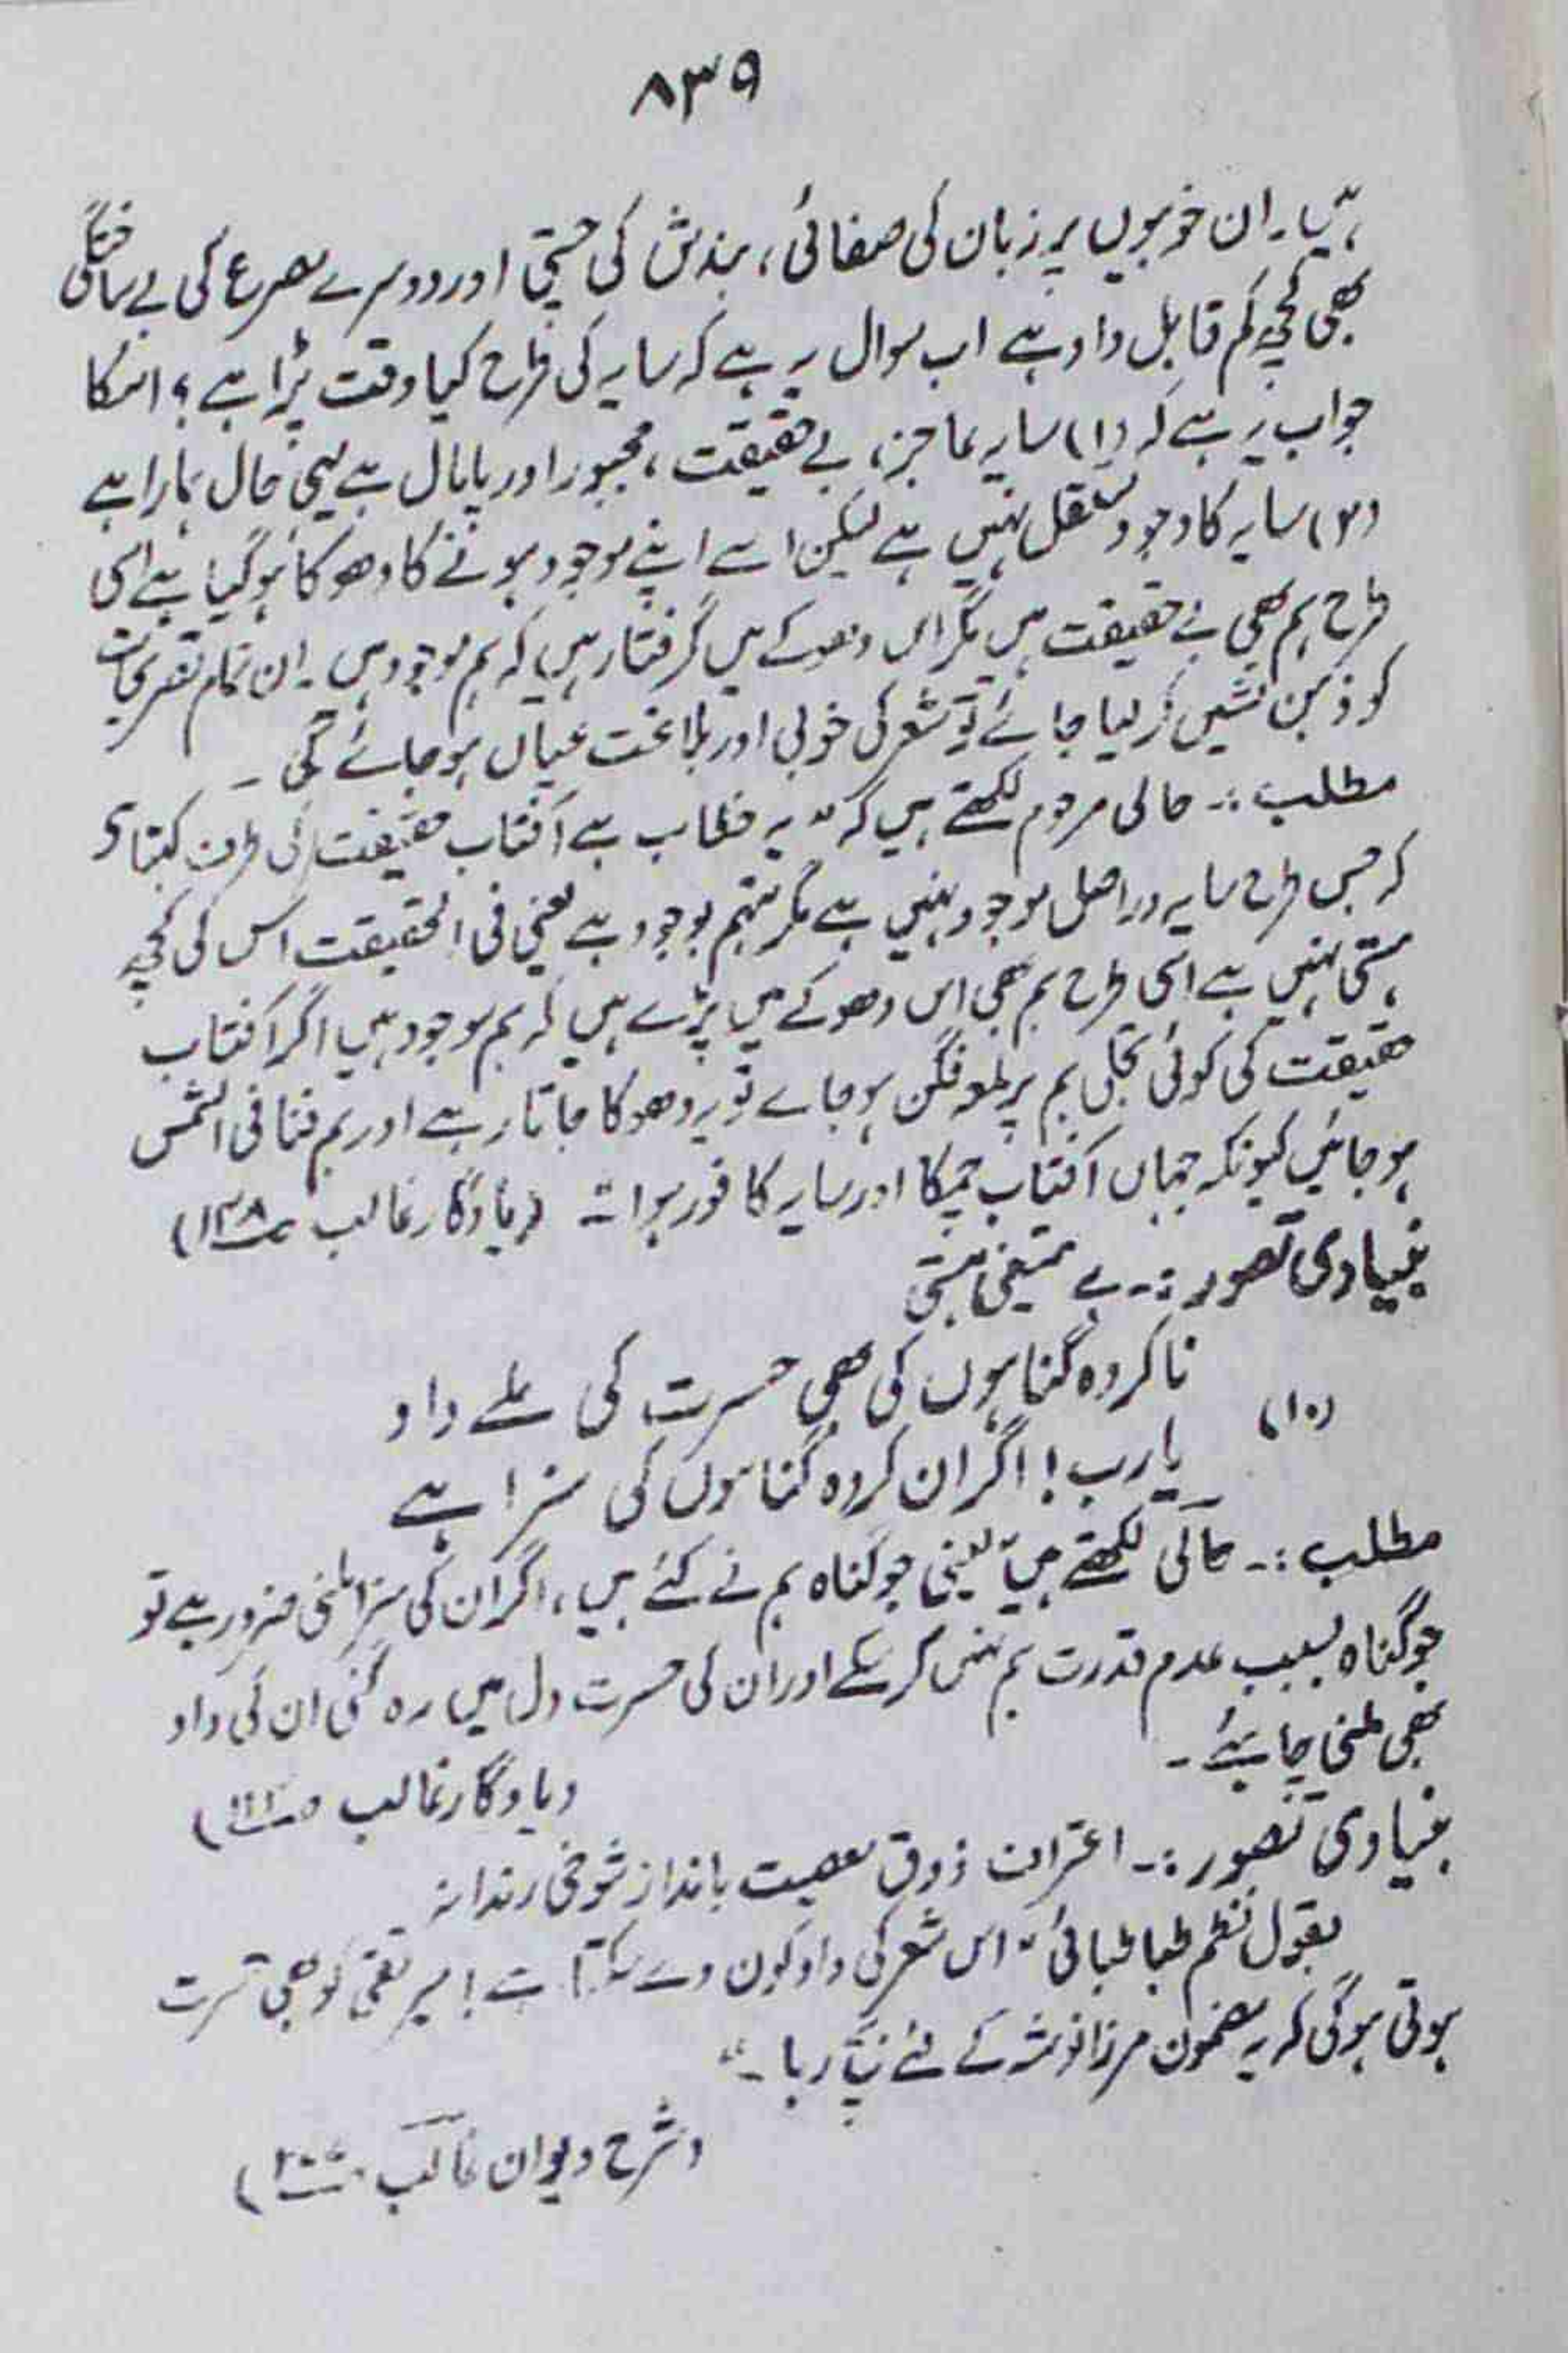 ۸۳۹
ہیں۔ ان خوبیوں پر زبان کی صفائی، بندش کی چستی اور دوسرے مصرع کی بے ساختگی
بھی کچھ کم قابل داد ہے اب سوال یہ ہے کہ سایہ کی طرح کیا وقت پڑا ہے؟ اسکا
جواب یہ ہے کہ (۱) سایہ عاجز، بے حقیقت، مجبور اور پامال ہے یہی حال ہمارا ہے
(۲) سایہ کا وجود مستقل نہیں ہے لیکن اسے اپنے موجود ہونے کا دھوکا ہو گیا ہے اسی
طرح ہم بھی بے حقیقت ہیں مگر اس دھوکے میں گرفتار ہیں کہ ہم موجود ہیں۔ ان تمام تصریحات
کو ذہن نشیں کر لیا جائے تو شعر کی خوبی اور بلاغت عیاں ہو جائے گی۔
مطلب:۔ حالی مرحوم لکھتے ہیں کہ "یہ خطاب ہے آفتاب حقیقت کی طرف کہتا ہے
کہ جس طرح سایہ دراصل موجود نہیں ہے مگر متہم بوجود ہے یعنی فی الحقیقت اس کی کچھ
ہستی نہیں ہے اسی طرح ہم بھی اس دھوکے میں پڑے ہیں کہ ہم موجود ہیں اگر آفتاب
حقیقت کی کوئی تجلی ہم پر لمعہ فگن ہو جاے تو یہ دھوکا جاتا رہے اور ہم فنا فی الشمس
ہو جائیں کیونکہ جہاں آفتاب چمکا اور سایہ کافور ہوا" (یادگار غالب ص۱۳۸)
بنیادی تصور:۔ بے حقیقی ہستی
ناکردہ گناہوں کی بھی حسرت کی ملے داد
(۱۰)
یارب! اگر ان کردہ گناہوں کی سزا ہے
مطلب:۔ حالی لکھتے ہیں "یعنی جو گناہ ہم نے کئے ہیں، اگر ان کی سزا ملنی ضرور ہے تو
جو گناہ بسبب عدم قدرت ہم نہیں کر سکے اور ان کی حسرت دل میں رہ گئی ان کی داد
بھی ملنی چاہیئے۔
(یادگار غالب
بنیادی تصور:۔ اعتراف ذوق معصیت بانداز شوخی رندانہ
بقول نظم طباطبائی "اس شعر کی داد کون دے سکتا ہے! میر تقی کو بھی حسرت
ہوتی ہو گی کہ یہ مضمون مرزا نوشہ کے لئے بچ رہا۔"
(شرح دیوان غالب